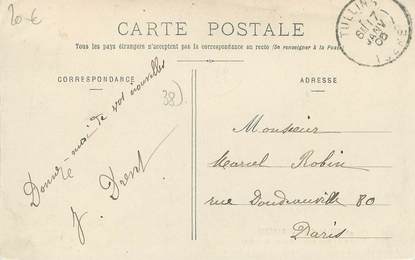 20 €
CARTE POSTALE
Tous les pays étrangers n'acceptent pas la correspondance au recto (Se renseigner à la Poste)
TULLINS
17
JANV
ISÈRE
CORRESPONDANCE
ADRESSE
38)
Donnez-moi de vos nouvelles
J. Drevet
Monsieur
Marcel Robin
rue Doudeauville 80
Paris